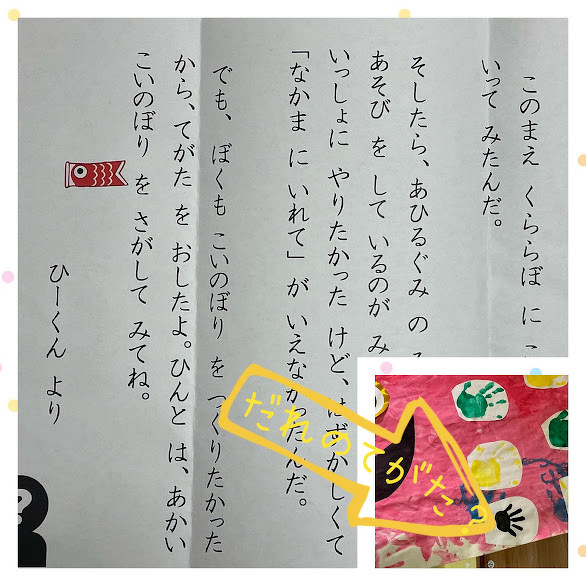 このまえ くららぼ に こ
いって みたんだ。
そしたら、あひるぐみ の
あそび を して いるのが み
いっしょに やりたかった けど、はずかしくて
「なかま に いれて」 が いえなかったんだ。
でも、 ぼくも こいのぼり を つくりたかった
から、てがた を おしたよ。ひんと は、あかい
こいのぼり を さがして みてね。
ひーくん より
?
だれのてがた